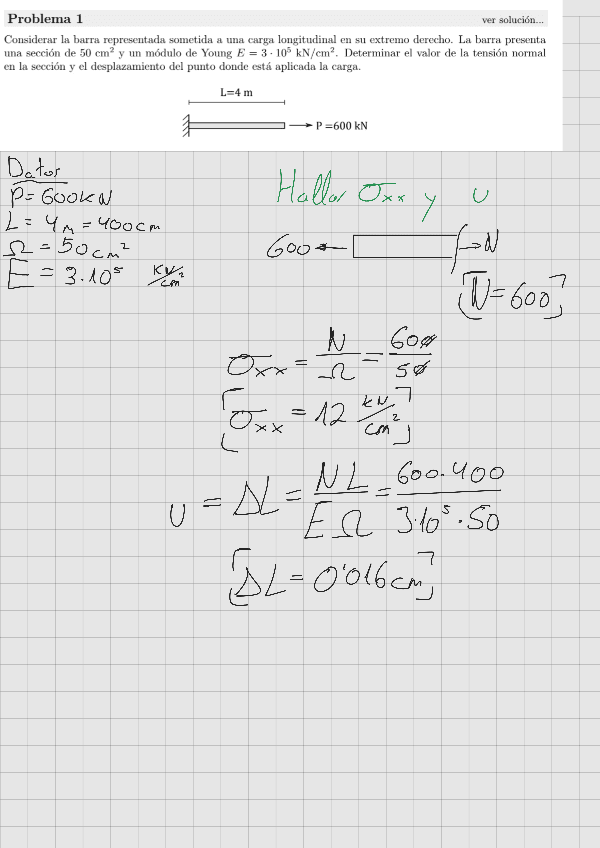 Problema 1
ver solución...
Considerar la barra representada sometida a una carga longitudinal en su extremo derecho. La barra presenta
una sección de 50 cm² y un módulo de Young E = 3 · 10⁵ kN/cm². Determinar el valor de la tensión normal
en la sección y el desplazamiento del punto donde está aplicada la carga.
L=4 m
P =600 kN
Datos
P= 600kN
L= 4m = 400cm
Ω = 50cm²
E = 3·10⁵ kN/cm²
Hallar σxx y u
600 N
[N=600]
σxx = N/Ω = 600/50
[σxx = 12 kN/cm²]
u = ΔL = NL/EΩ = 600·400/3·10⁵·50
[ΔL = 0'016cm]